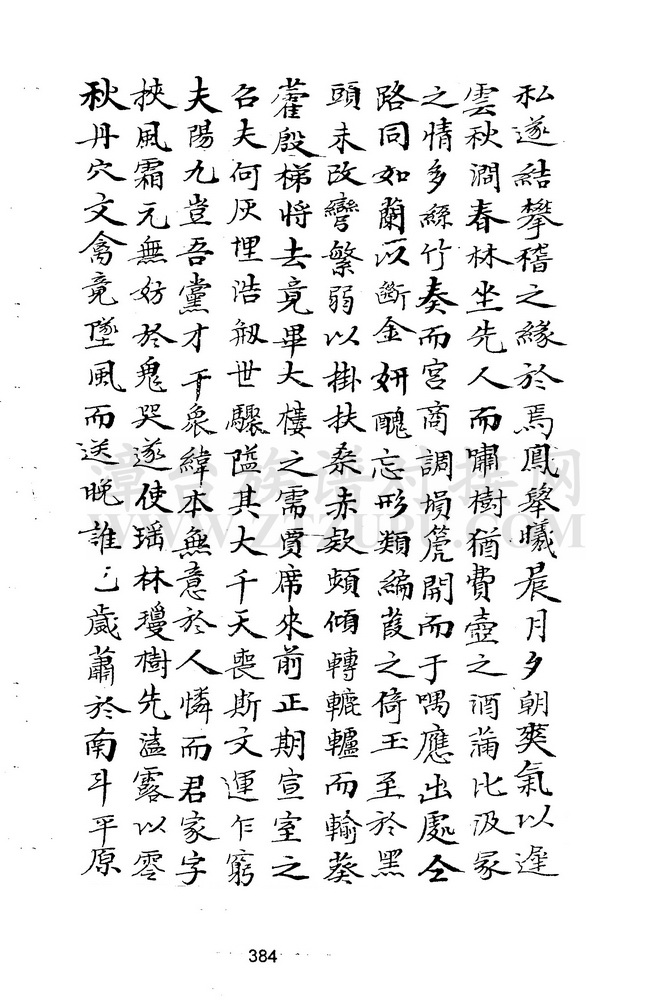 私遂結攀稽之緣於焉鳳舉曦晨月夕朝爽氣以遲
雲秋澗春林坐先人而嘯樹猶費壺之酒蒲比汲冢
之情多絲竹奏而宮商調塤篪開而于喁應出處仝
路同如蘭以斷金妍醜忘形類編葭之倚玉至於黑
頭未改彎繁弱以掛扶桑赤欬頻傾轉轆轤而輸葵
藿殷梯將去竟畢大樓之需賈席來前正期宣室之
召夫何灰埋浩刼世驟隘其大千天喪斯文運乍窮
夫陽九豈吾黨才干象緯本無意於人憐而君家字
挾風霜元無妨於鬼哭遂使瑶林瓊樹先溘露以零
秋丹穴文禽竟墜風而送晚誰亡歲蕭於南斗平原
384
漳台族谱对接网
WWW.ZTZUPU.COM